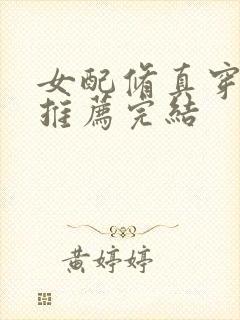 女配脩真穿
推薦完結
黄婷婷